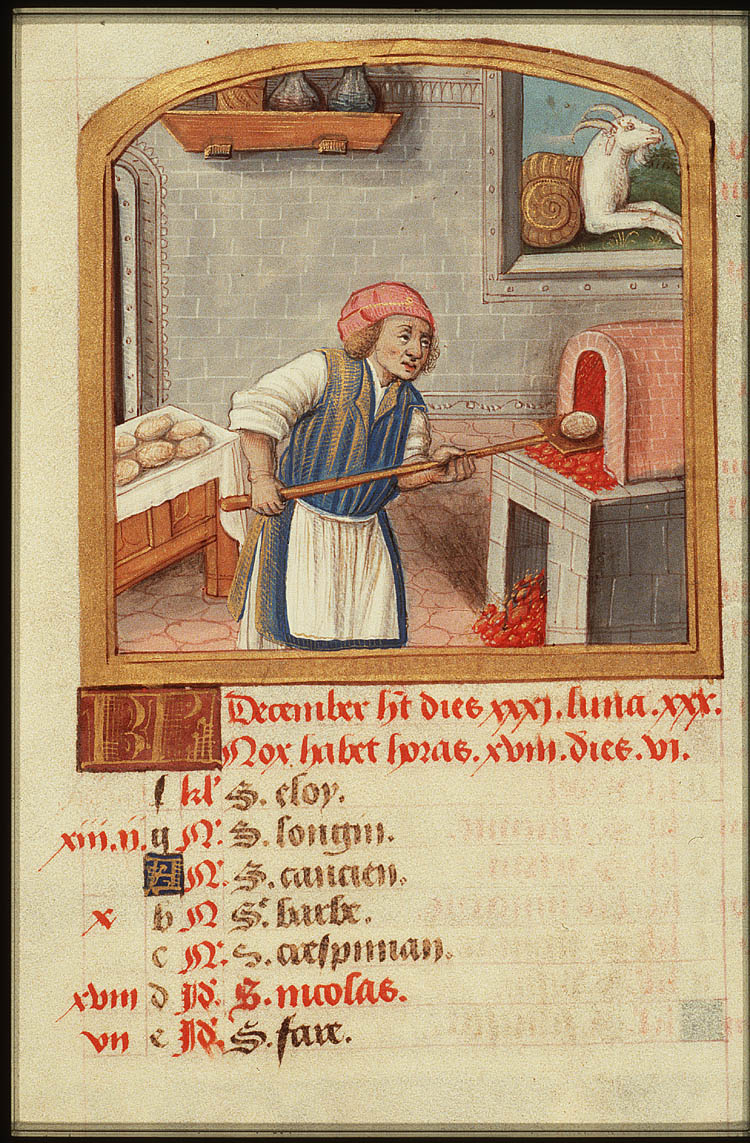 KL December ht dies xxxi. luna. xxx.
Nox habet horas. xviii. dies. vi.
f kl' S. eloy.
xiii. ii. g N'. S. longin.
A N'. S. cancien.
x b N Sᵉ. barbe.
c N'. S. crespinian.
xviii d Id'. S. nicolas.
vii e Id'. S. fare.